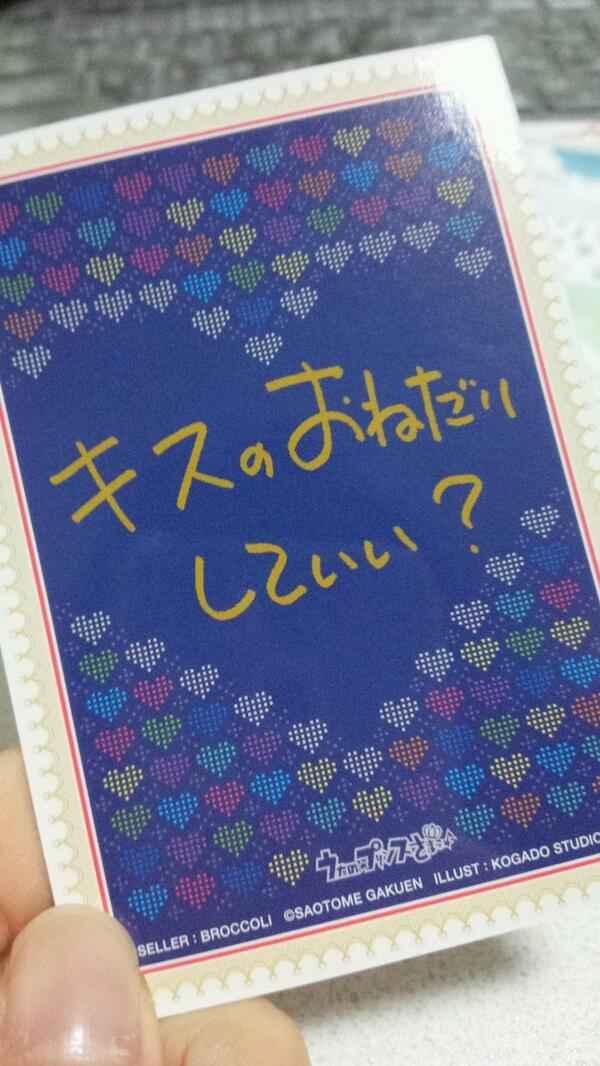 キスのおねだり
していい?
うたの☆プリンスさまっ♪
SELLER : BROCCOLI ©SAOTOME GAKUEN ILLUST : KOGADO STUDIO